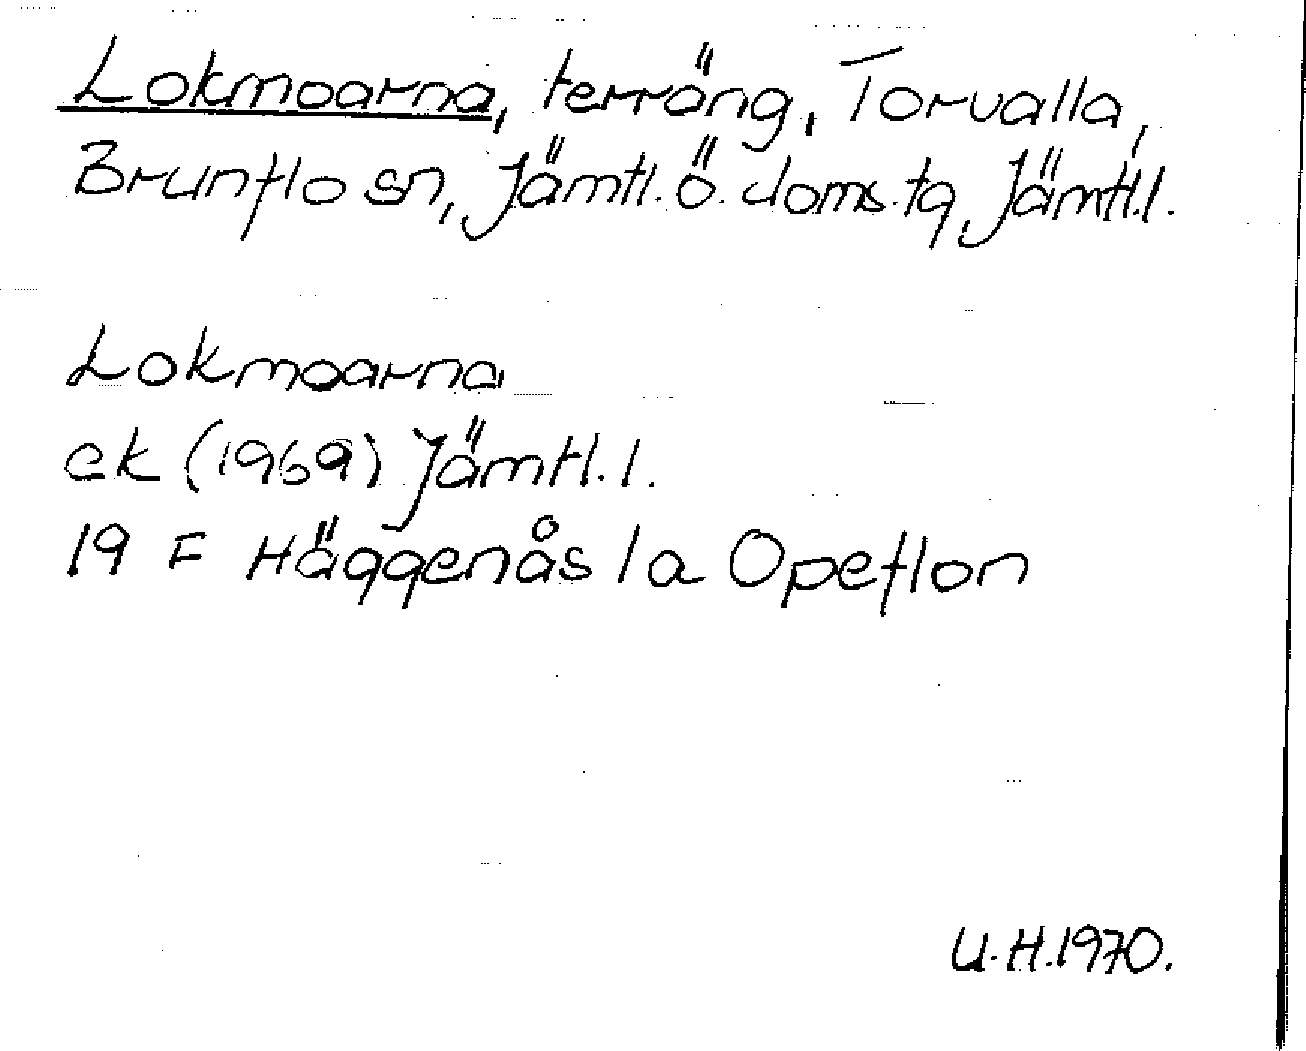 Lokmoarna, terräng, Torvalla,
Brunflo sn, Jämtl. ö. doms. tg, Jämtl. l.
Lokmoarna
ek (1969) Jämtl. l.
19 F Häggenås 1a Opeflon
U. H. 1970.